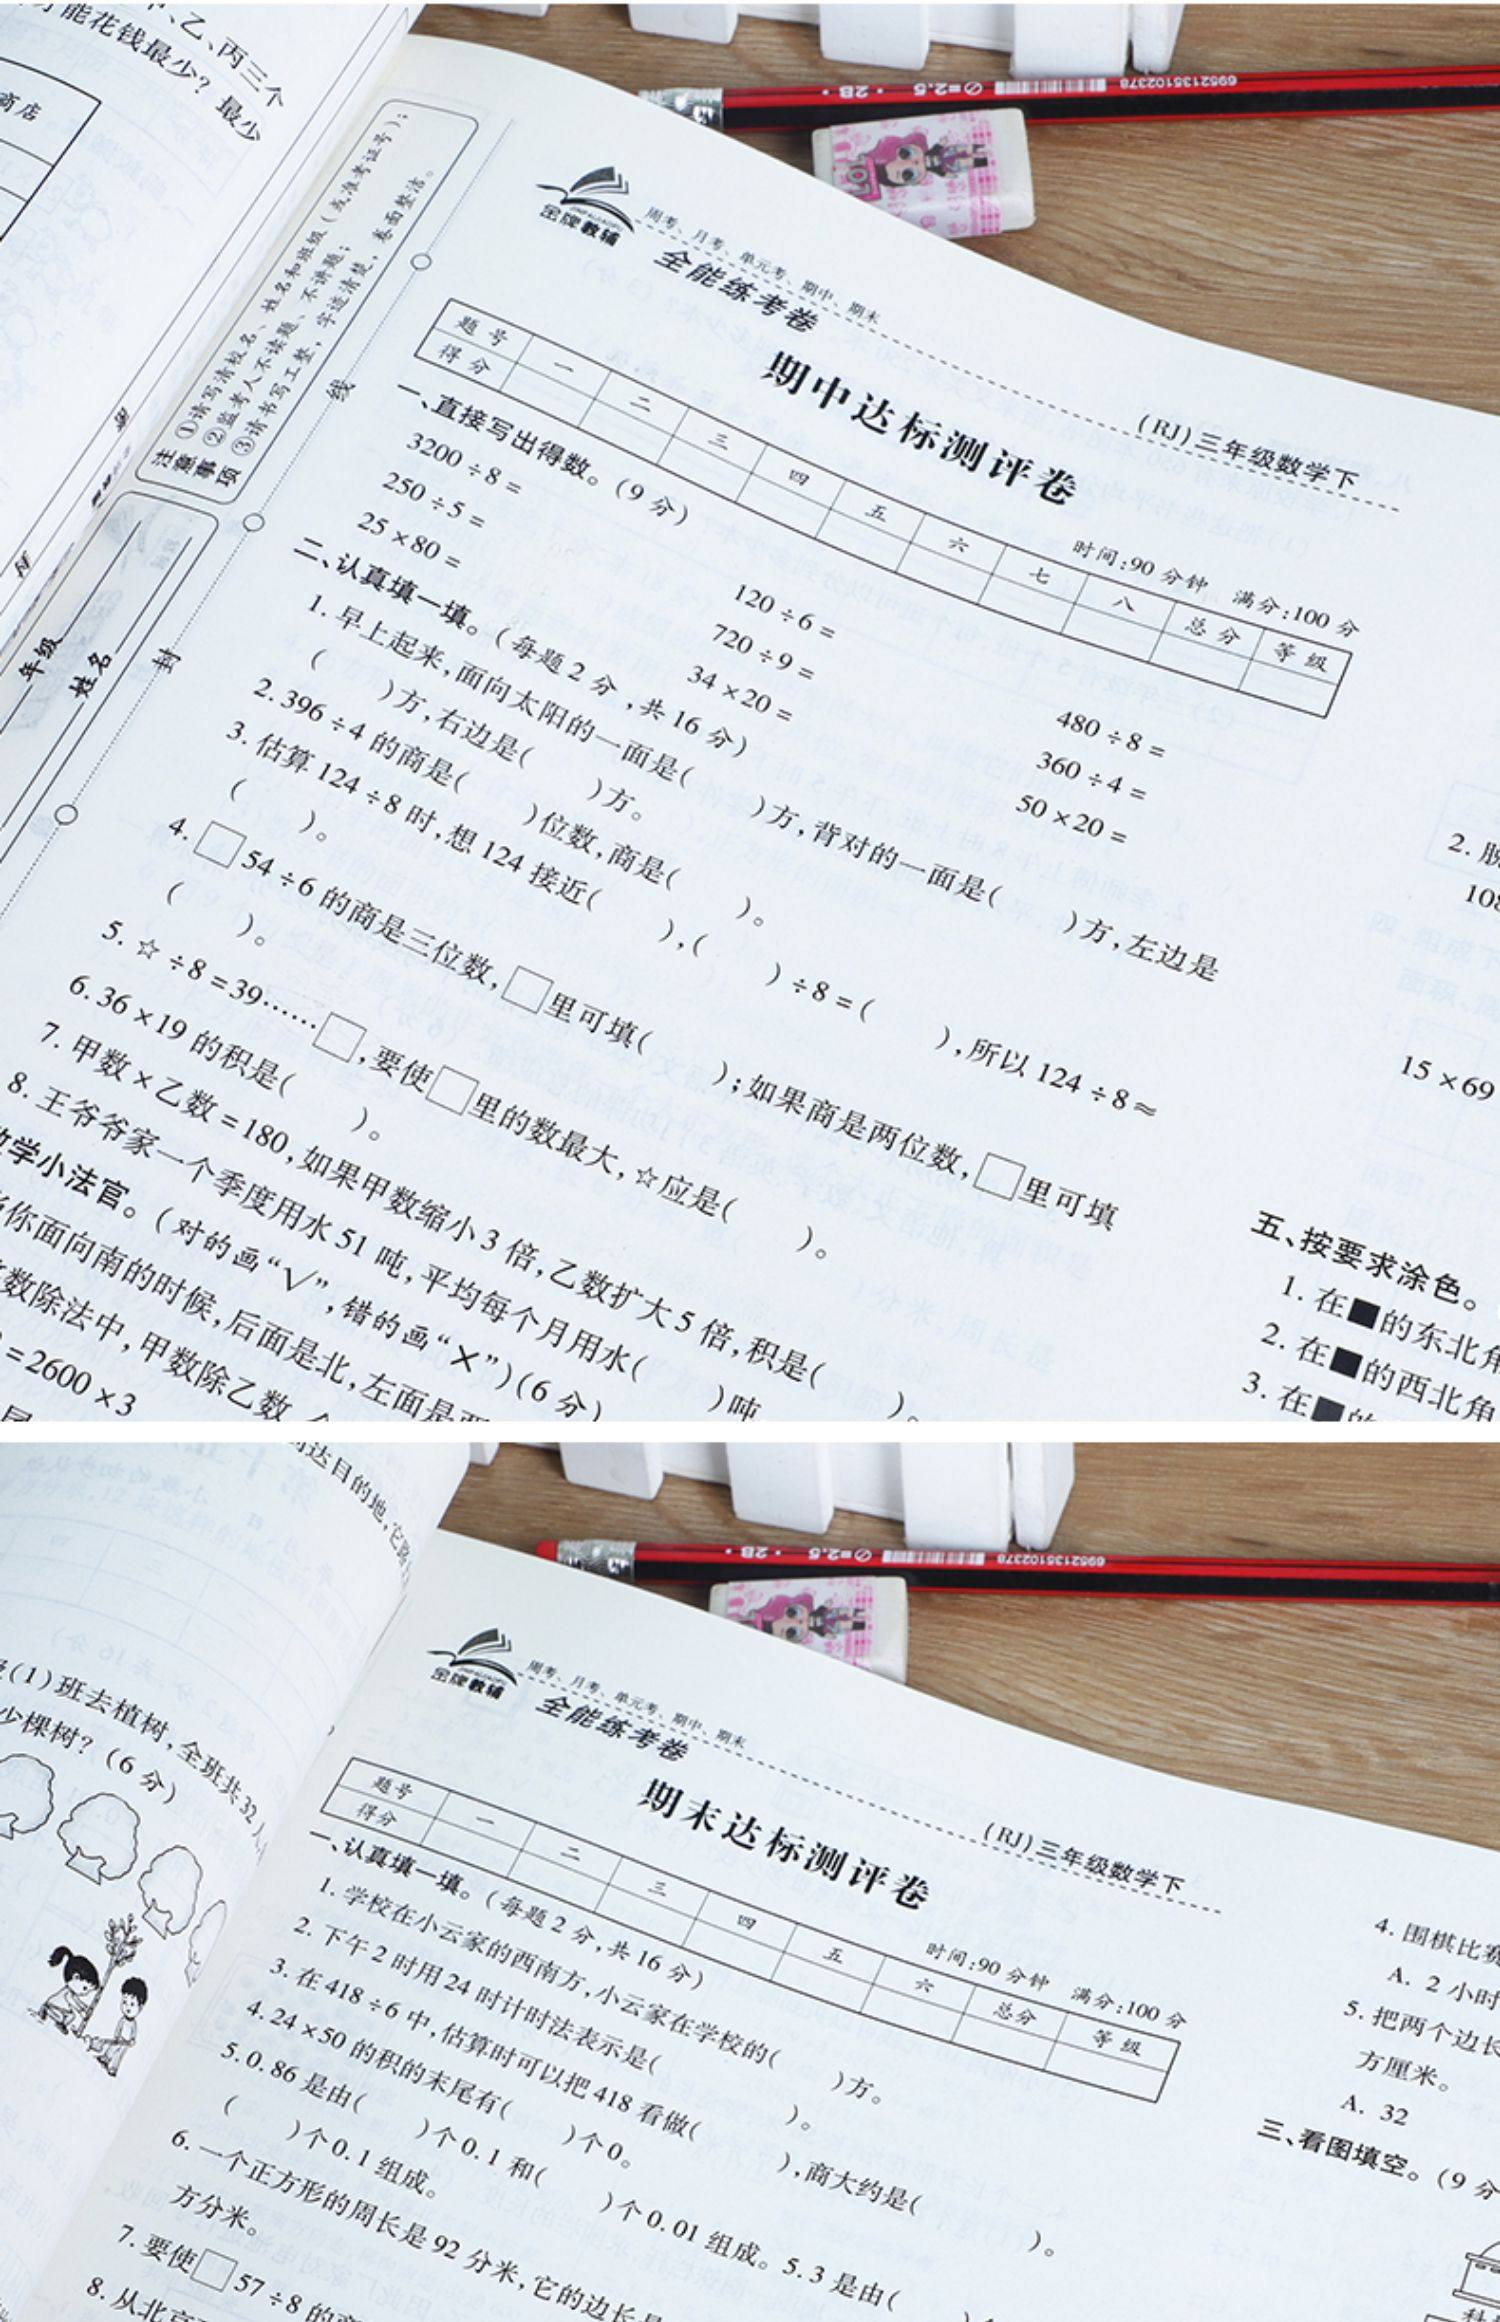 、乙、丙三个
能花钱最少？最少
商店
6952135102378
⊘=2.5 · 2B ·
注意事项
①请写清校名、姓名和班级（或准考证号）；
②监考人不读题、不讲题；
③请书写工整，字迹清楚，卷面整洁。
线
封
年级
姓名
金牌教辅
周考、月考、单元考、期中、期末
全能练考卷
(RJ)三年级数学下
期中达标测评卷
时间:90 分钟 满分:100 分
题号 一 二 三 四 五 六 七 八 总分 等级
得分
一、直接写出得数。(9 分)
3200÷8= 120÷6= 480÷8=
250÷5= 720÷9= 360÷4=
25×80= 34×20= 50×20=
二、认真填一填。(每题 2 分,共 16 分)
1. 早上起来,面向太阳的一面是( )方,背对的一面是( )方,左边是
( )方,右边是( )方。
2. 396÷4 的商是( )位数,商是( )。
3. 估算 124÷8 时,想 124 接近( ),( )÷8=( ),所以 124÷8≈
( )。
4. □54÷6 的商是三位数,□里可填( );如果商是两位数,□里可填
( )。
5. ☆÷8=39……□,要使□里的数最大,☆应是( )。
6. 36×19 的积是( )。
7. 甲数×乙数=180,如果甲数缩小 3 倍,乙数扩大 5 倍,积是( )。
8. 王爷爷家一个季度用水 51 吨,平均每个月用水( )吨
学小法官。(对的画“√”,错的画“×”)(6 分)
你面向南的时候,后面是北,左面是西
数除法中,甲数除乙数
=2600×3
2. 脱
108
15×69
五、按要求涂色。
1. 在■的东北角
2. 在■的西北角
3. 在■的
达目的地,它
(1)班去植树,全班共32人
少棵树?(6 分)
6952135102378
⊘=2.5 · 2B ·
金牌教辅
周考、月考、单元考、期中、期末
全能练考卷
(RJ)三年级数学下
期末达标测评卷
时间:90 分钟 满分:100 分
题号 一 二 三 四 五 六 总分 等级
得分
一、认真填一填。(每题 2 分,共 16 分)
1. 学校在小云家的西南方,小云家在学校的( )方。
2. 下午 2 时用 24 时计时法表示是( )。
3. 在 418÷6 中,估算时可以把 418 看做( ),商大约是( )。
4. 24×50 的积的末尾有( )个0。
5. 0.86 是由( )个 0.1 和( )个 0.01 组成。5.3 是由(
( )个 0.1 组成。
6. 一个正方形的周长是 92 分米,它的边长是
方分米。
7. 要使□57÷8 的商
8. 从北京
4. 围棋比赛
A. 2 小时
5. 把两个边长
方厘米。
A. 32
三、看图填空。(9 分